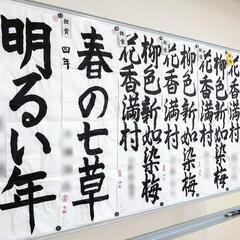 柳色新如染梅
花香満村
柳色新如染梅
花香満村
柳色新如染梅
花香満村
柳色新如染梅
花香満村
春の七草
銀賞
四年
明るい年